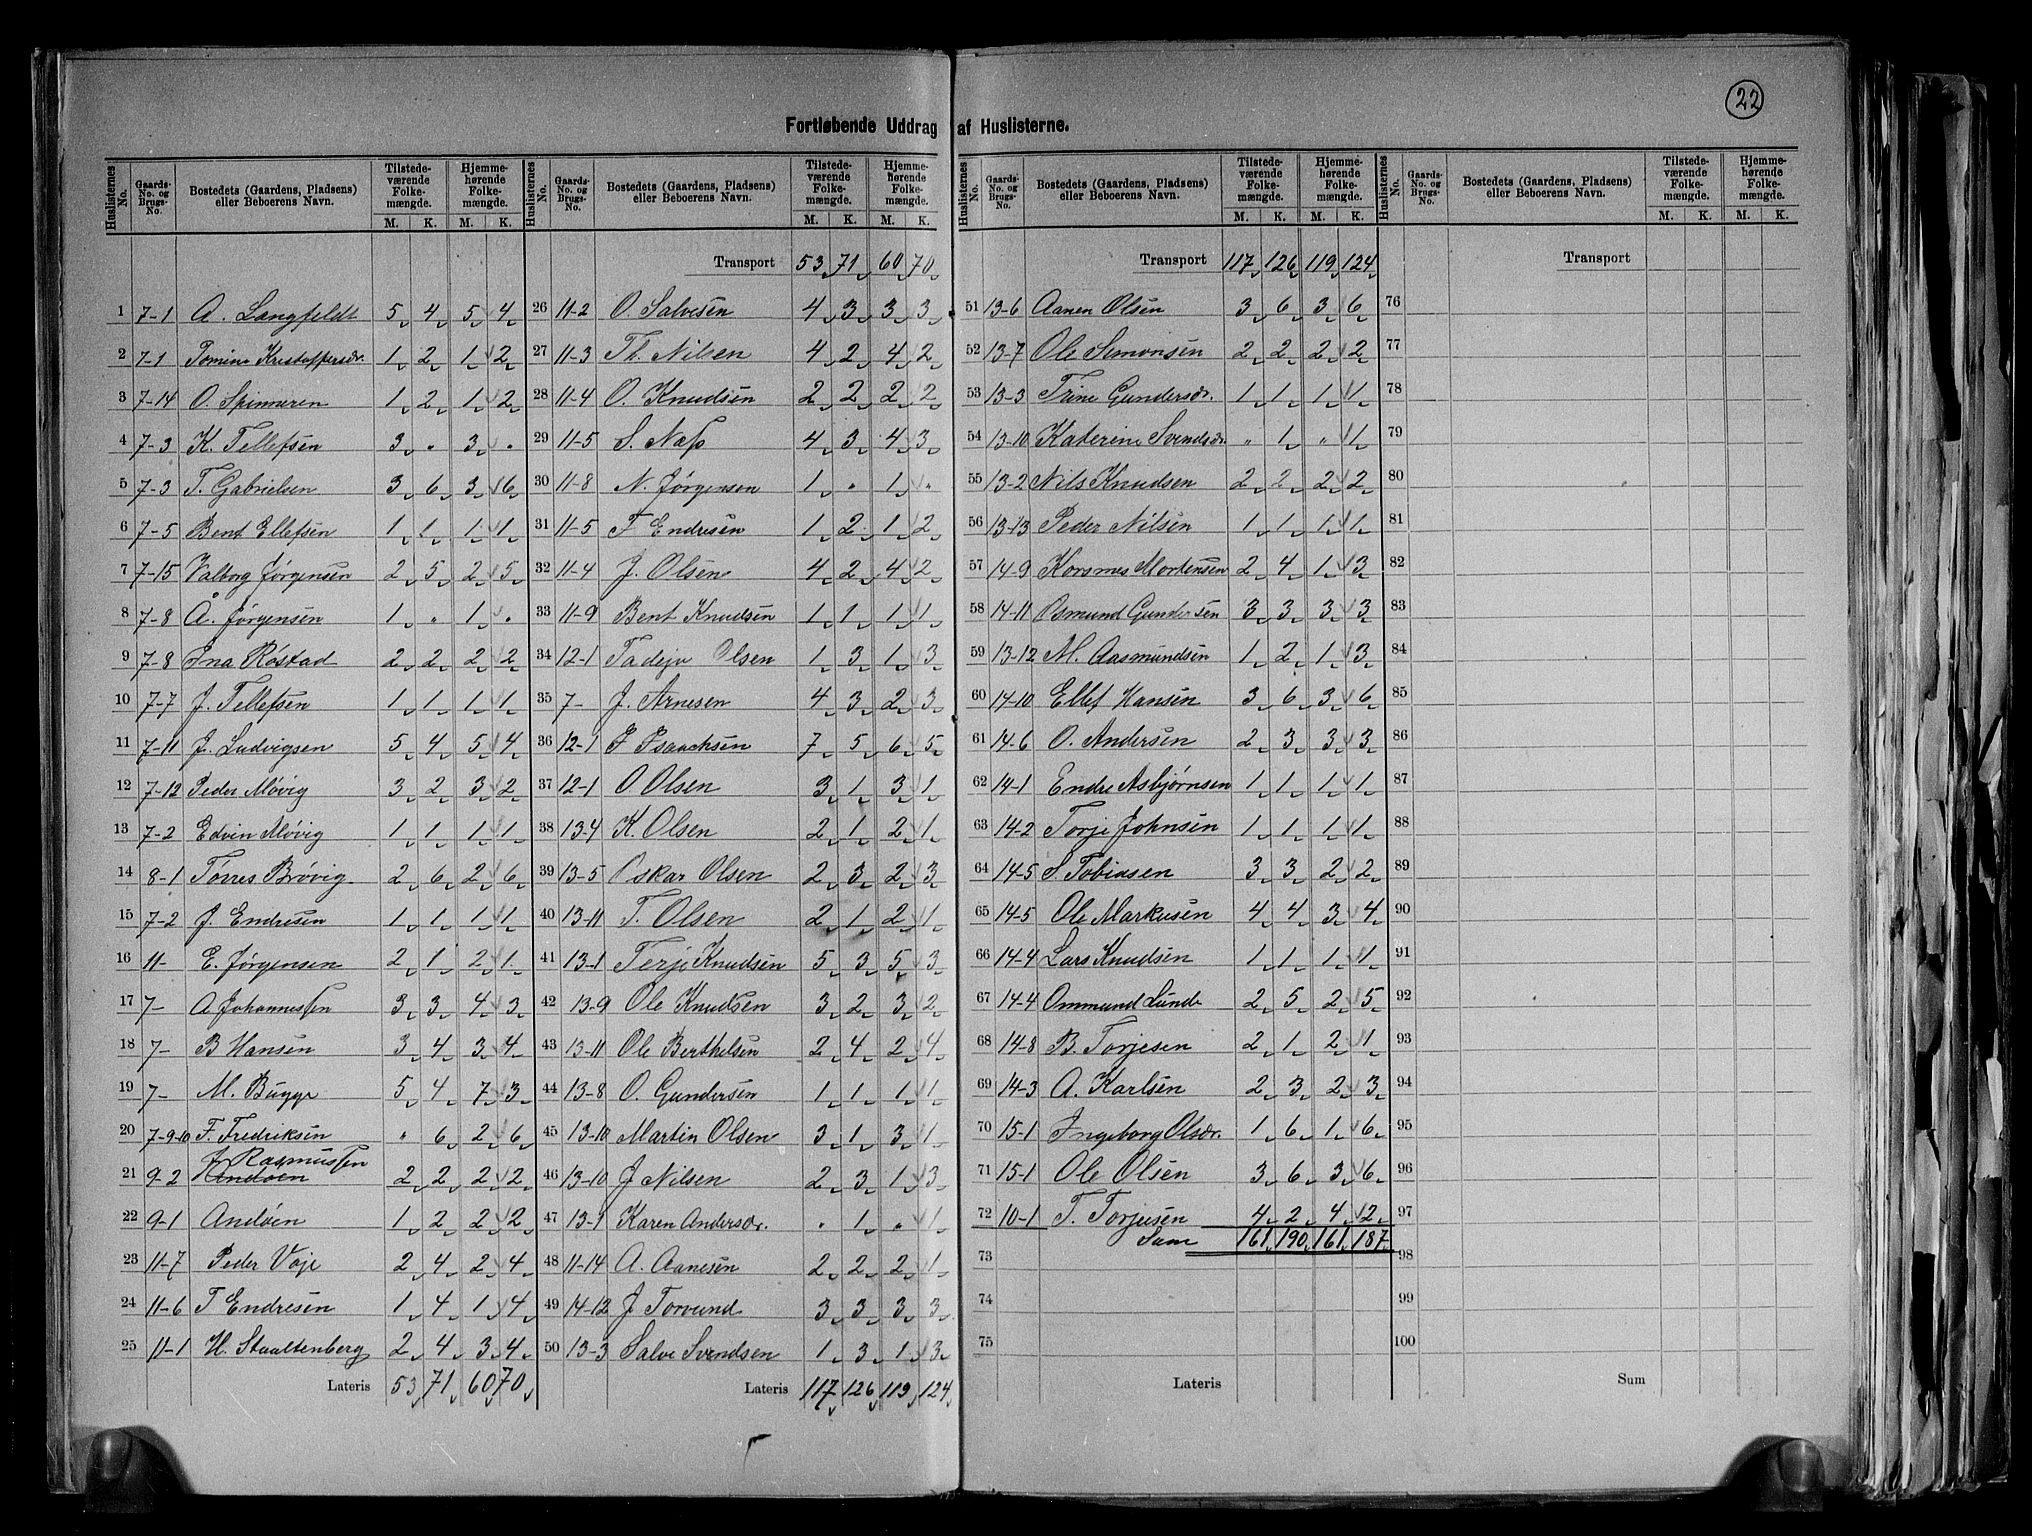 22
Fortløbende Uddrag af Huslisterne.
Huslisternes No. | Gaards-No. og Brugs-No. | Bostedets (Gaardens, Pladsens) eller Beboerens Navn. | Tilstede-værende Folke-mængde. M. K. | Hjemme-hørende Folke-mængde. M. K.
1 7-1 A. Langfeldt 5 4 5 4
2 7-1 Tomine Kristoffersdr. 1 2 1 2
3 7-14 O. Spinneren 1 2 1 2
4 7-3 K. Tellefsen 3 " 3 "
5 7-3 T. Gabrielsen 3 6 3 6
6 7-5 Bent Ellefsen 1 1 1 1
7 7-15 Valborg Jørgensen 2 5 2 5
8 7-8 Å. Jørgensen 1 " 1 "
9 7-8 Ina Røstad 2 2 2 2
10 7-7 J. Tellefsen 1 1 1 1
11 7-11 J. Ludvigsen 5 4 5 4
12 7-12 Peder Møvig 3 2 3 2
13 7-2 Edvin Møvig 1 1 1 1
14 8-1 Tørres Brøvig 2 6 2 6
15 7-2 J. Endresen 1 1 1 1
16 11- E. Jørgensen 2 1 2 1
17 7- A Johannessen 3 3 4 3
18 7- B Hansen 3 4 3 4
19 7- M. Bugge 5 4 7 3
20 7-9-10 F. Fredriksen " 6 2 6
21 9-2 J Rasmussen Andøen 2 2 2 2
22 9-1 Andøen 1 2 2 2
23 11-7 Peder Voje 2 4 2 4
24 11-6 T Endresen 1 4 1 4
25 11-1 H. Staaltenberg 2 4 3 4
Lateris 53 71 60 70
Huslisternes No. | Gaards-No. og Brugs-No. | Bostedets (Gaardens, Pladsens) eller Beboerens Navn. | Tilstede-værende Folke-mængde. M. K. | Hjemme-hørende Folke-mængde. M. K.
Transport 53 71 60 70
26 11-2 O. Salvesen 4 3 3 3
27 11-3 Th. Nilsen 4 2 4 2
28 11-4 O. Knudsen 2 2 2 2
29 11-5 S. Næss 4 3 4 3
30 11-8 N. Jørgensen 1 " 1 "
31 11-5 F Endresen 1 2 1 2
32 11-4 J. Olsen 4 2 4 2
33 11-9 Bent Knudsen 1 1 1 1
34 12-1 Tadeju Olsen 1 3 1 3
35 7- J. Arnesen 4 3 2 3
36 12-1 F Isaachsen 7 5 6 5
37 12-1 O Olsen 3 1 3 1
38 13-4 K. Olsen 2 1 2 1
39 13-5 Oskar Olsen 2 3 2 3
40 13-11 T. Olsen 2 1 2 1
41 13-1 Terje Knudsen 5 3 5 3
42 13-9 Ole Knudsen 3 2 3 2
43 13-11 Ole Berthelsen 2 4 2 4
44 13-8 O. Gundersen 1 1 1 1
45 13-10 Martin Olsen 3 1 3 1
46 13-10 J Nilsen 2 3 1 3
47 13-1 Karen Andersdr. " 1 " 1
48 11-14 A. Aanesen 2 2 2 1
49 14-12 J Torvund 3 3 3 3
50 13-3 Salve Svendsen 1 3 1 3
Lateris 117 126 119 124
Huslisternes No. | Gaards-No. og Brugs-No. | Bostedets (Gaardens, Pladsens) eller Beboerens Navn. | Tilstede-værende Folke-mængde. M. K. | Hjemme-hørende Folke-mængde. M. K.
Transport 117 126 119 124
51 13-6 Aanen Olsen 3 6 3 6
52 13-7 Ole Simonsen 2 2 2 2
53 13-3 Trine Gundersdr. 1 1 1 1
54 13-10 Katerine Svendsdr. " 1 " 1
55 13-2 Nils Knudsen 2 2 2 2
56 13-13 Peder Nilsen 1 1 1 1
57 14-9 Korsmes Mortensen 2 4 1 3
58 14-11 Osmund Gundersen 3 3 3 3
59 13-12 M. Aasmundsen 1 2 1 3
60 14-10 Ellef Hansen 3 6 3 6
61 14-6 O. Andersen 2 3 3 3
62 14-1 Endre Asbjørnsen 1 1 1 1
63 14-2 Torje Johnsen 1 1 1 1
64 14-5 S. Tobiasen 3 3 2 2
65 14-5 Ole Markusen 4 4 3 4
66 14-4 Lars Knudsen 1 1 1 1
67 14-4 Ommund Lunde 2 5 2 5
68 14-8 B. Torjesen 2 1 2 1
69 14-3 A. Karlsen 2 3 2 3
70 15-1 Ingeborg Olsdr. 1 6 1 6
71 15-1 Ole Olsen 3 6 3 6
72 10-1 T. Torjusen 4 2 4 2
Sum 161 190 161 187
73
74
75
Lateris
Huslisternes No. | Gaards-No. og Brugs-No. | Bostedets (Gaardens, Pladsens) eller Beboerens Navn. | Tilstede-værende Folke-mængde. M. K. | Hjemme-hørende Folke-mængde. M. K.
Transport
76
77
78
79
80
81
82
83
84
85
86
87
88
89
90
91
92
93
94
95
96
97
98
99
100
Sum